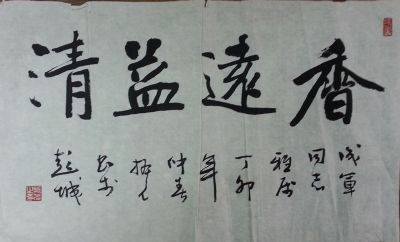 香遠益清
成軍
同志
雅属
丁卯
年
仲春
书於
彭城